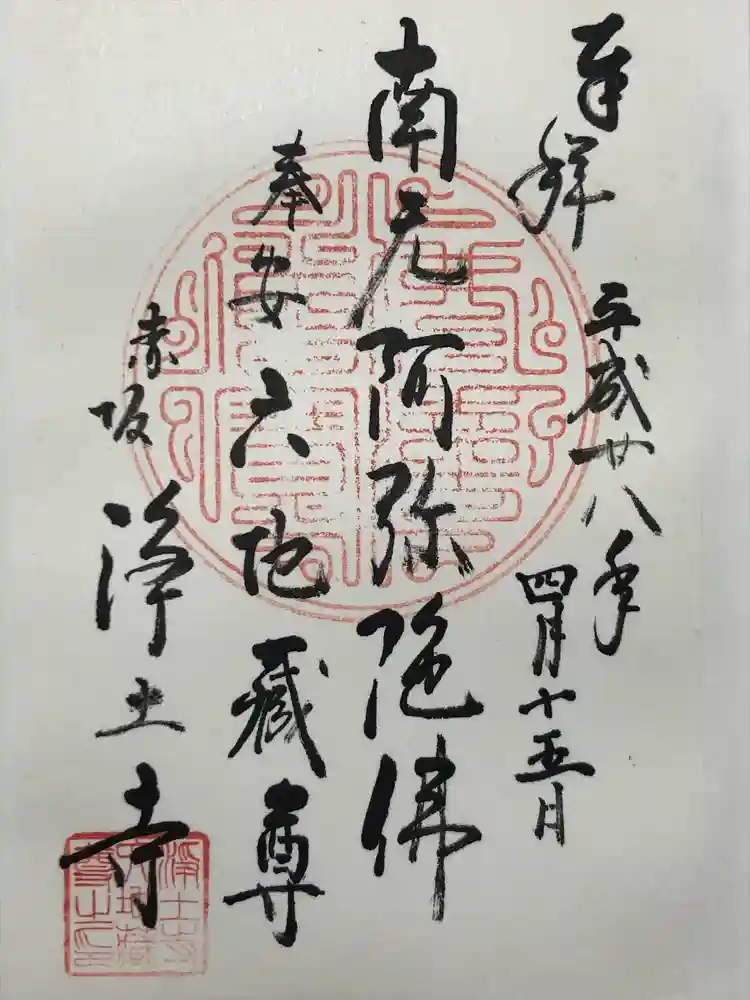 奉拝
平成廿八年
四月十五日
南无阿弥陀佛
奉安 六地蔵尊
赤坂 浄土寺